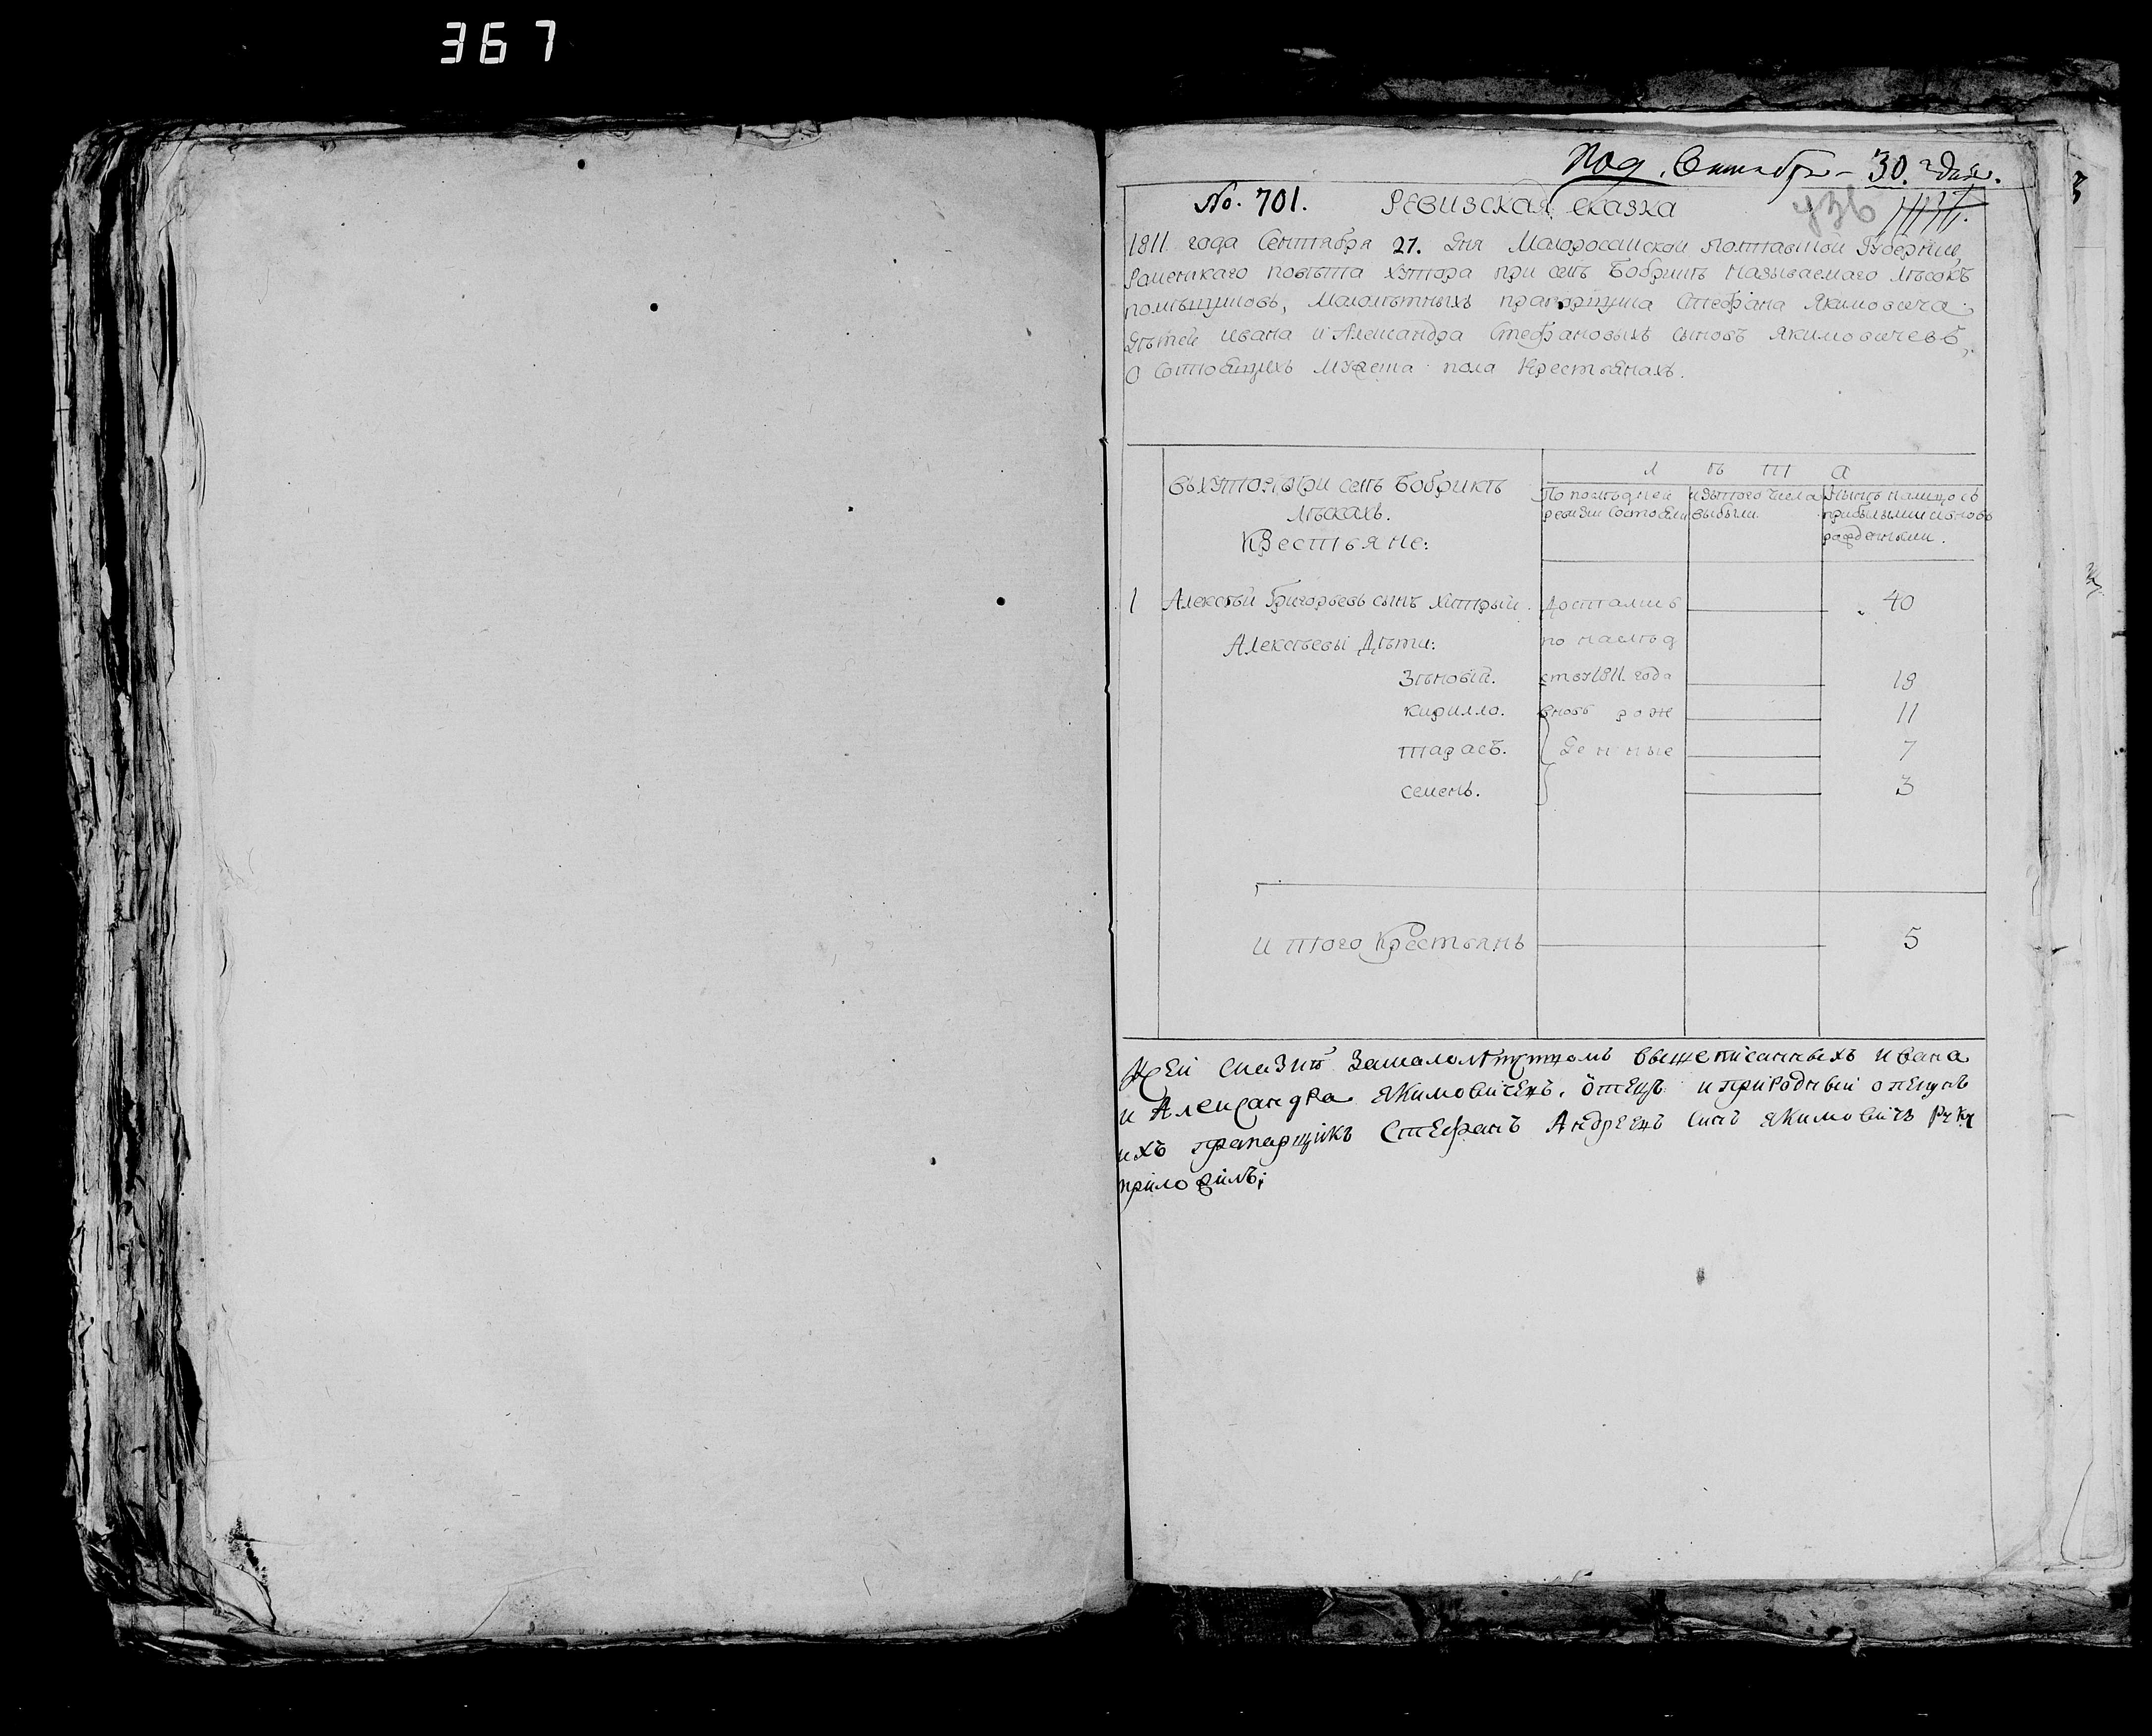 367
Под. Октября - 30. Дня.
No. 701. Ревизская сказка
436
1811 года Сентября 27. Дня Малороссиской Полтавской Губернии,
Роменскаго повѣта хутора при селѣ Бобрикѣ называемаго Лѣсокъ
помѣщиковъ, Малолѣтныхъ прапорщика Стефана Якимовича
Дѣтей Ивана и Александра Стефановыхъ сыновъ Якимовичевъ,
О Состоящихъ мужеска пола Крестьянахъ.
Л ѣ т а
въ хуторѣ при селѣ Бобрикѣ
Лѣскахъ.
Крестьяне:
По послѣдней ревизии Состояли
изъ того числа выбыли
Нынѣ налицо съ прибылыми и вновь рожденными.
1 Алексѣй Григорьевъ сынъ Хитрый. Достались 40
Алексѣевы Дѣти: по наслѣд
Зѣновій. ству 1811. года 18
Кирилло. вновь рож 11
Тарасъ. Денные 7
Семенъ. 3
Итого Крестьянъ 5
Ксей сказки замалолѣтствомъ вышеписанныхъ Ивана
и Александра Якимовичей, отецъ и природный опекунъ
ихъ прапарщикъ Стефанъ Андреевъ синъ Якимовичъ руку
приложилъ;